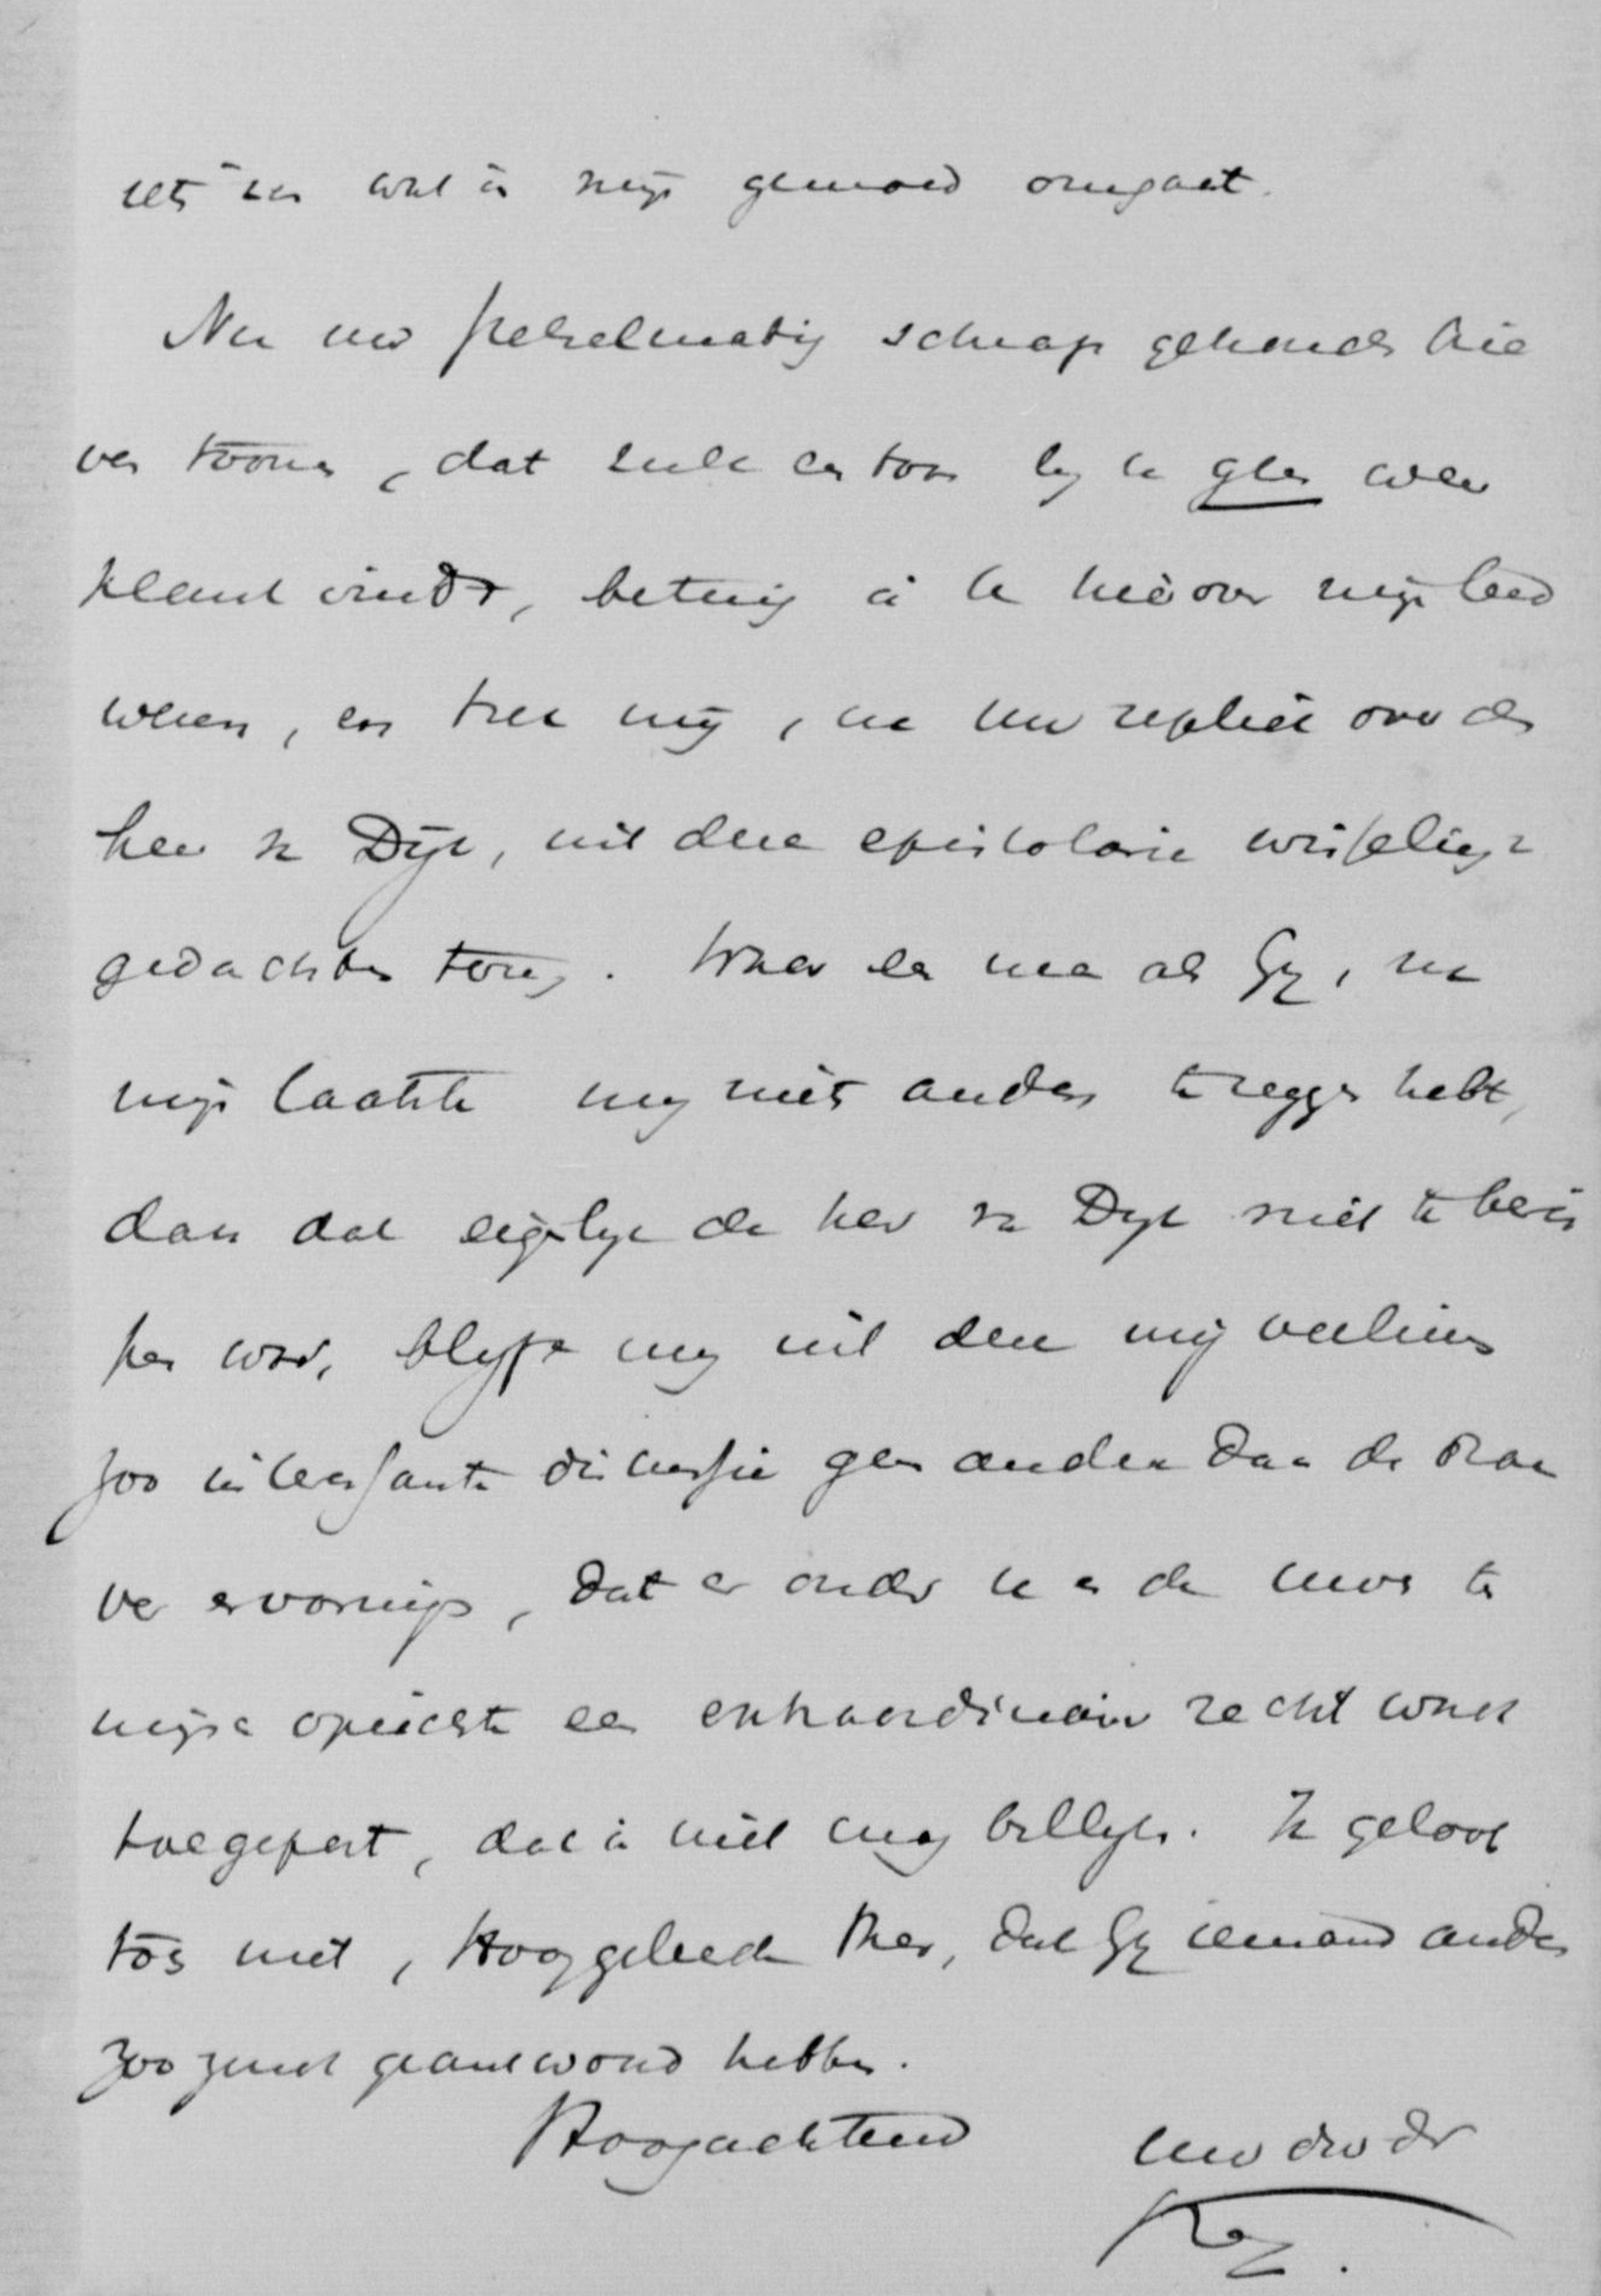 iets van wat in mijn gemoed omgaat.
Nu uw stelselmatig schrap gehouden brie
ven toonen, dat zulk een toon bij u geen weer
klank vindt, betuig ik u hierover mijn leed
wezen, en trek mij, na uw repliek over den
heer v Dijk, uit deze epistolaire wisseling v
gedachten terug. Waar een man als Gij, na
mijn laatste mij niets anders te zeggen hebt,
dan dat eigenlijk de heer v Dyk niet te beris
pen was, blijft mij uit deze mij veelszins
zoo interessante discussie geen andere dan de droe
ve ervaring, dat er onder u en de uwen te
mijnen opzichte een extraordinair recht wordt
toegepast, dat ik niet mag billijken. Ik geloof
toch niet, Hooggeleerde Heer, dat Gij iemand anders
zoo zoudt geantwoord hebben.
Hoogachtend
uw dw dr